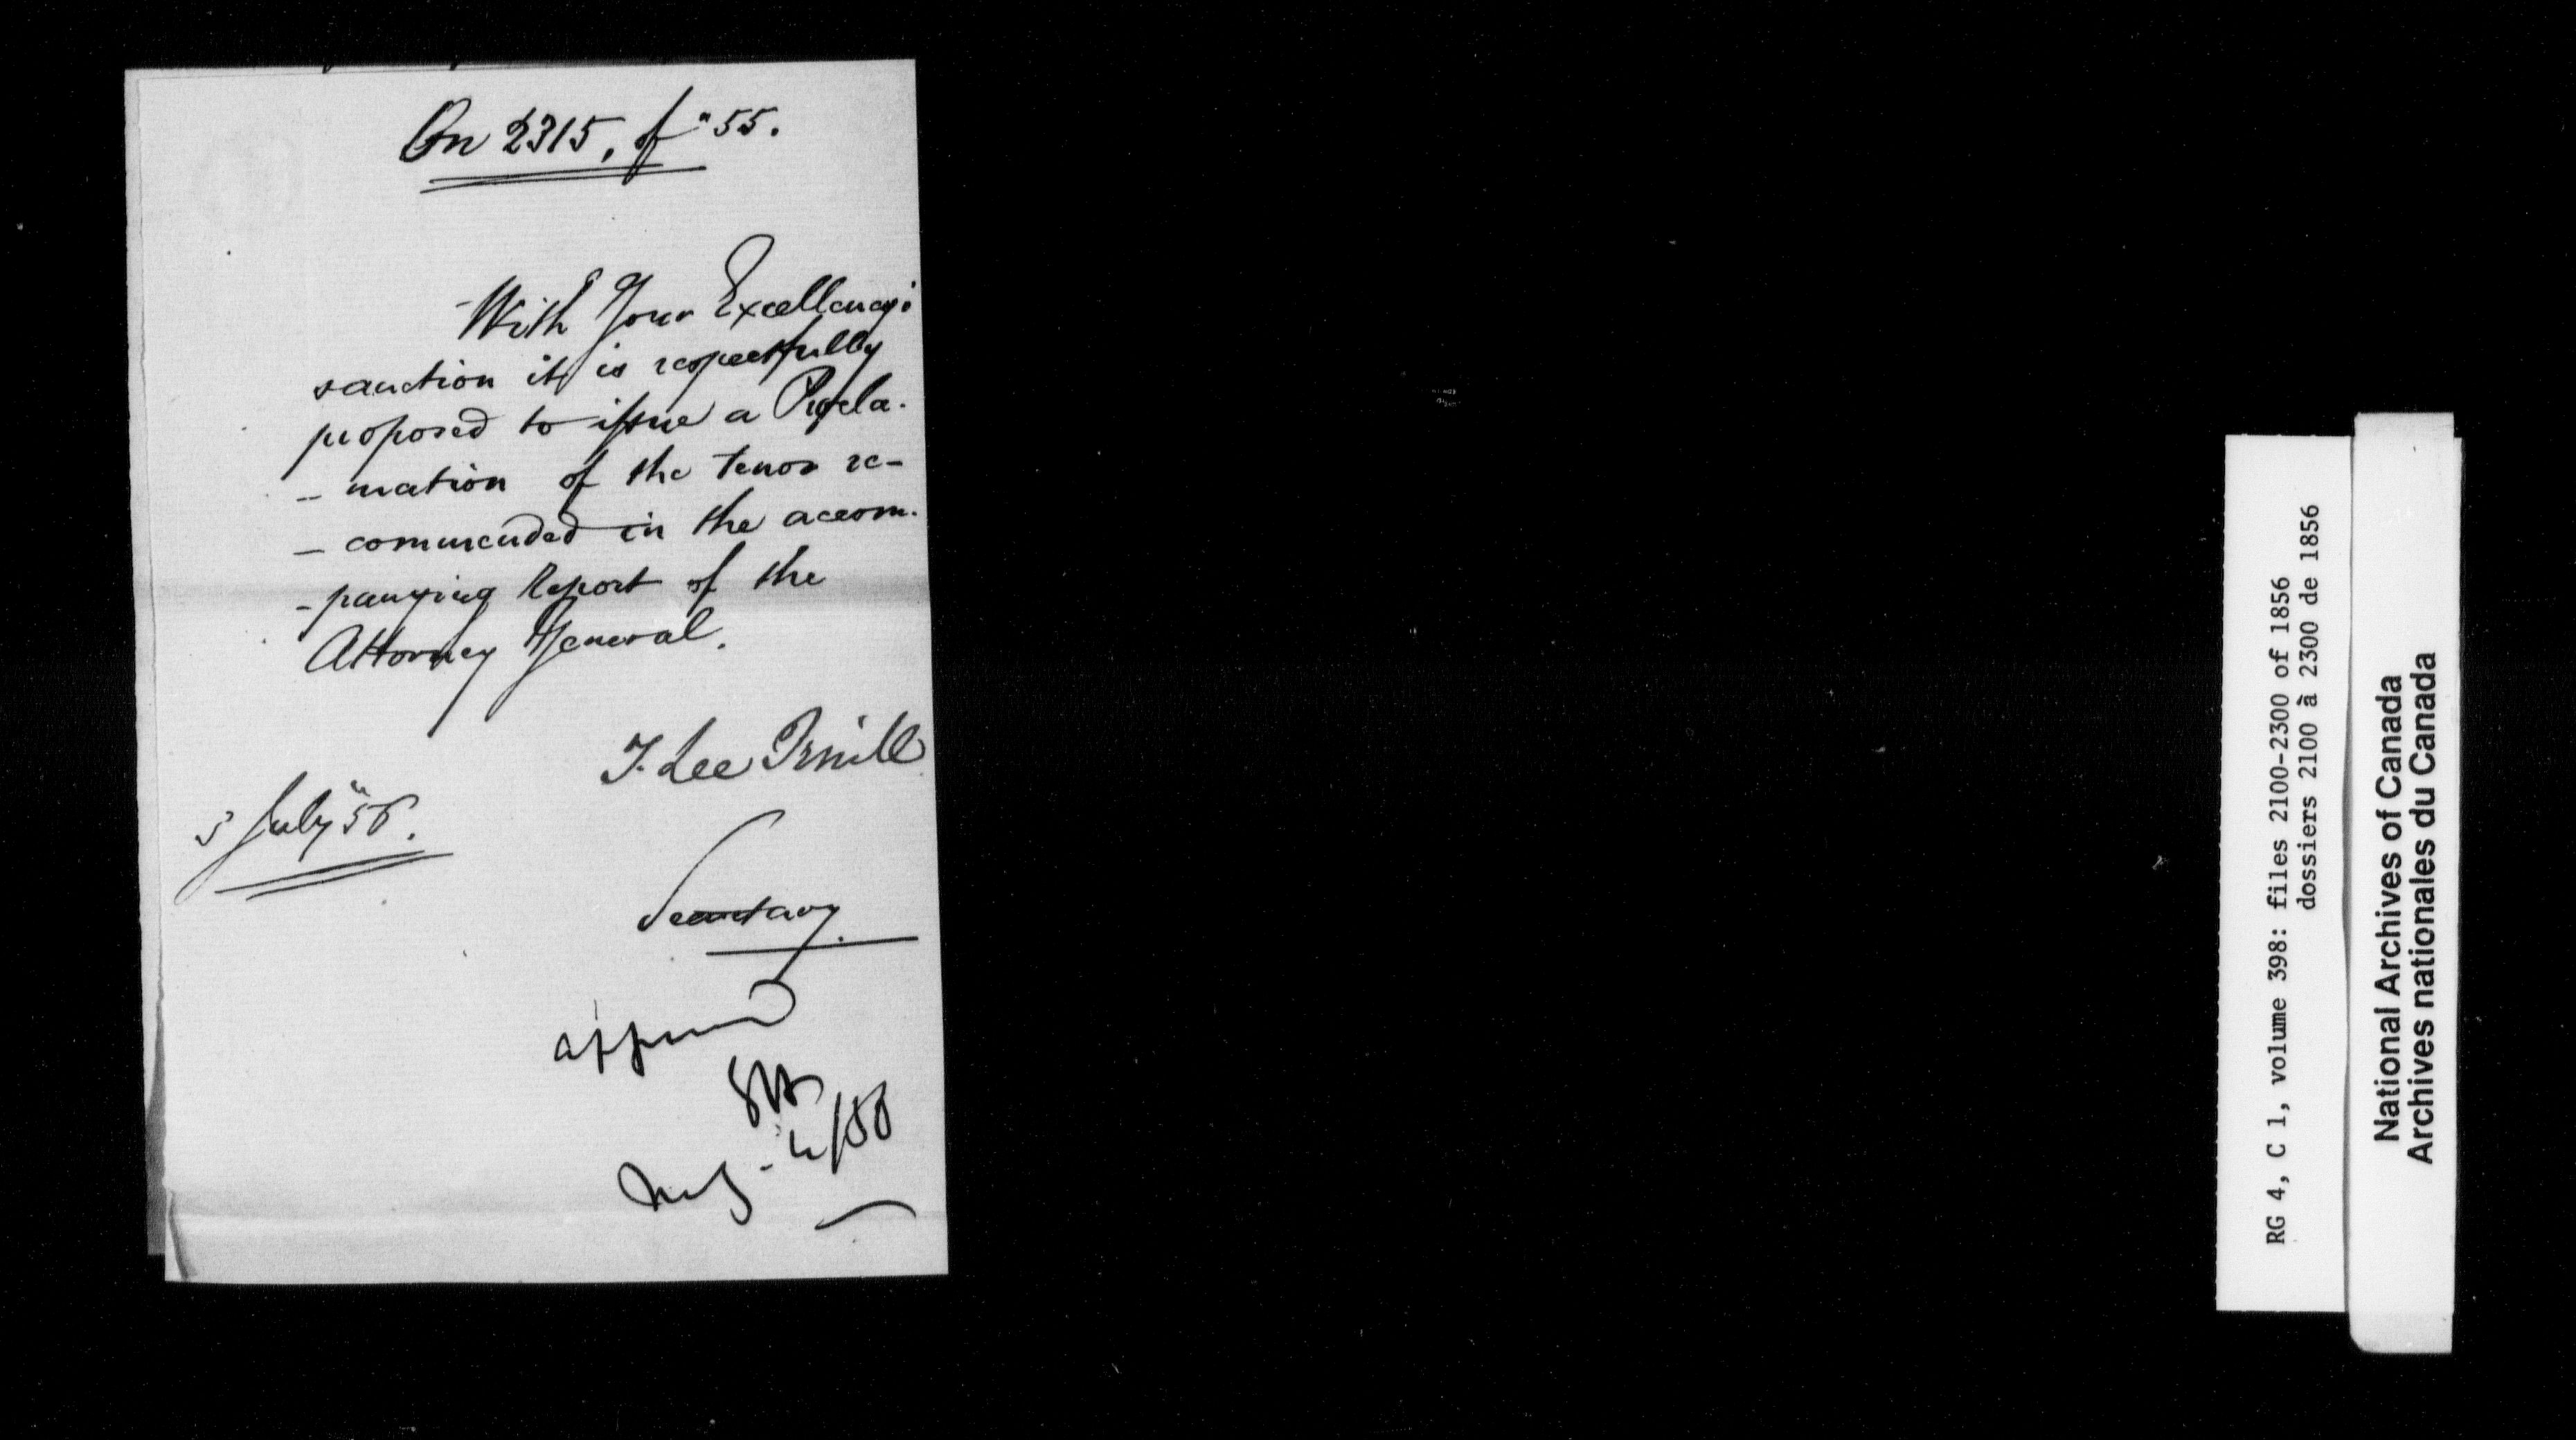 On 2315, of "55.
With Your Excellency's
sanction it is respectfully
proposed to issue a Procla-
- mation of the tenor re-
- commended in the accom-
- panying Report of the
Attorney General.
T. Lee Terrill
5 July "56.
Secretary.
approved
RG 4, C 1, volume 398: files 2100-2300 of 1856
dossiers 2100 à 2300 de 1856
National Archives of Canada
Archives nationales du Canada